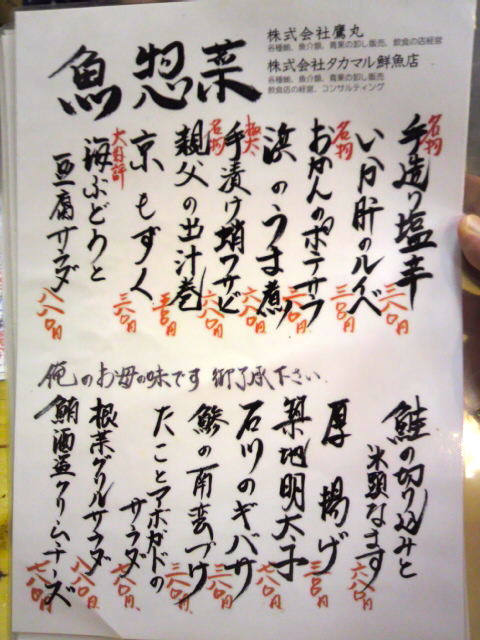 魚惣菜
株式会社鷹丸
各種鮪、魚介類、青果の卸し販売、飲食の店経営
株式会社タカマル鮮魚店
各種鮪、魚介類、青果の卸し販売
飲食店の経営、コンサルティング
名物
手造り塩辛 三八〇円
いか肝のルイベ 三八〇円
名物
おかんのポテサラ 三八〇円
浜のうま煮 六八〇円
極太
手漬け蛸ワサビ
名物
親父の出汁巻
京もずく 三八〇円
大好評
海ぶどうと
豆腐サラダ 八八〇円
俺のお母の味です 御了承下さい
鮭の切り込みと
氷頭なます 六八〇円
厚揚げ
築地明太子 七八〇円
石川のギバサ 三八〇円
鯵の南蛮づけ
たことアボガドの
サラダ 七八〇円
根菜グリルサラダ 八八〇円
鮪酒盗クリームチーズ 七八〇円